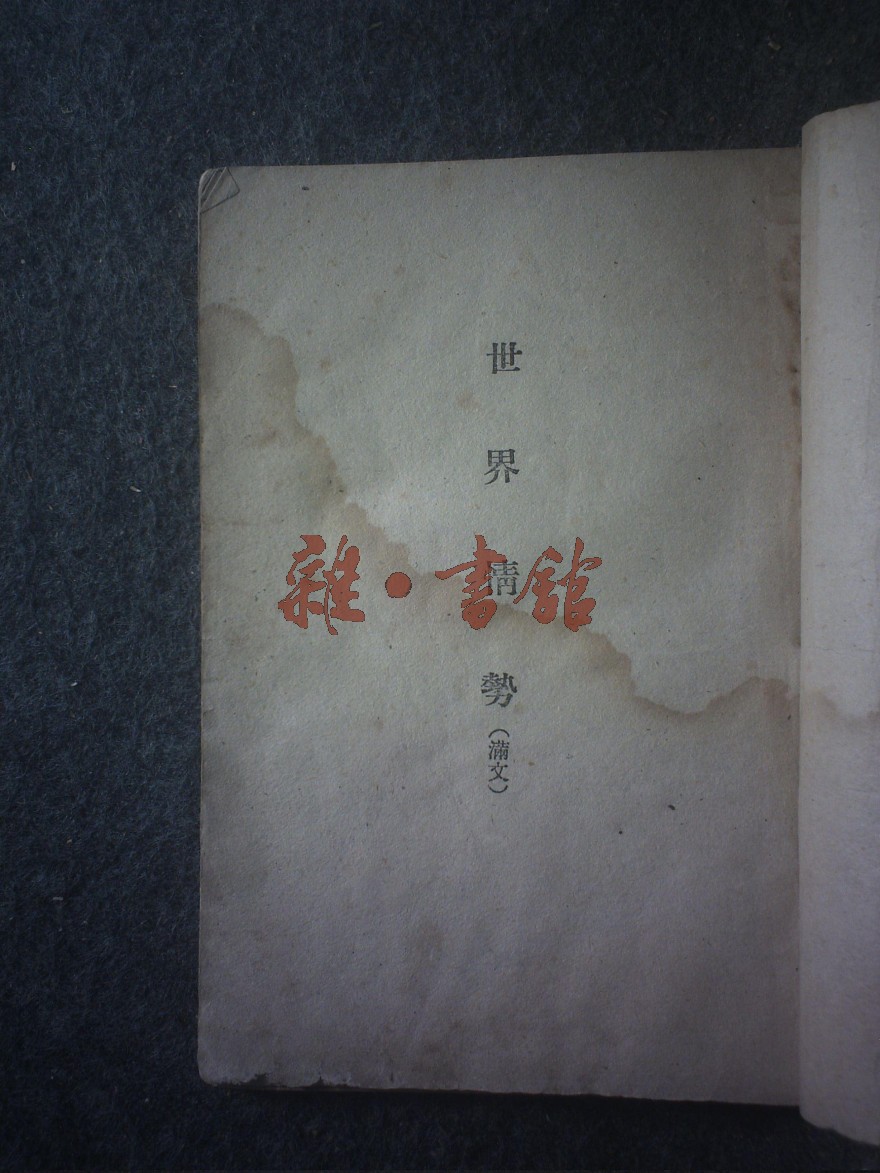 世界情勢(滿文)
雜·書館